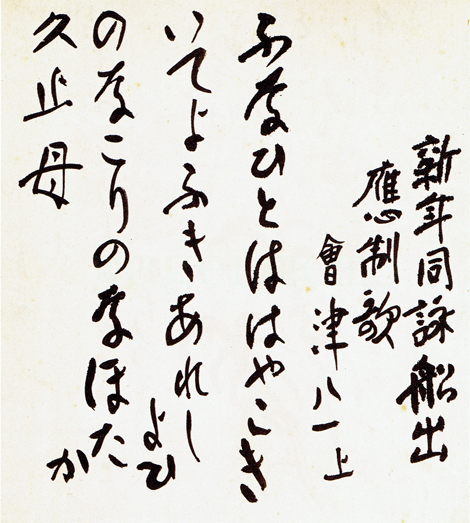 新年同詠船出
應制歌
會津八一上
ふなひとははやこき
いてよふきあれしよひ
のなこりのなほたか
久止母